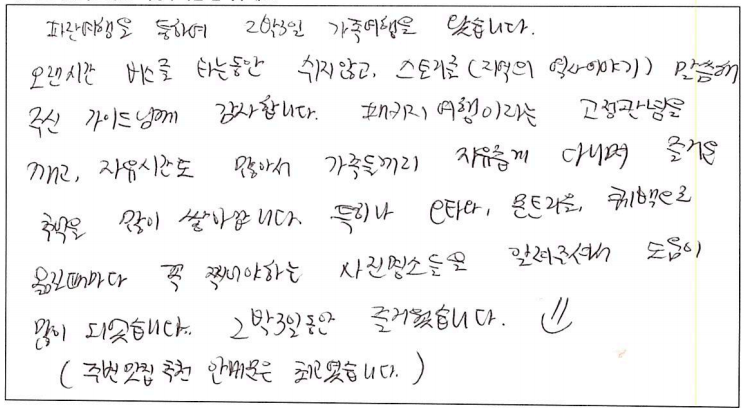 파란여행을 통하여 2박3일 가족여행을 왔습니다.
오랜시간 버스를 타는동안 쉬지않고, 스토리로 (지역의 역사이야기) 말씀해
주신 가이드님께 감사합니다. 패키지 여행이라는 고정관념을
깨고, 자유시간도 많아서 가족들끼리 자유롭게 다니며 즐거운
추억을 많이 쌓아갑니다. 특히나 오타와, 몬트리올, 퀘백으로
옮길때마다 꼭 찍어야하는 사진명소들을 알려주셔서 도움이
많이 되었습니다. 2박3일동안 즐거웠습니다.
(주변맛집 추천 안내문은 최고였습니다.)